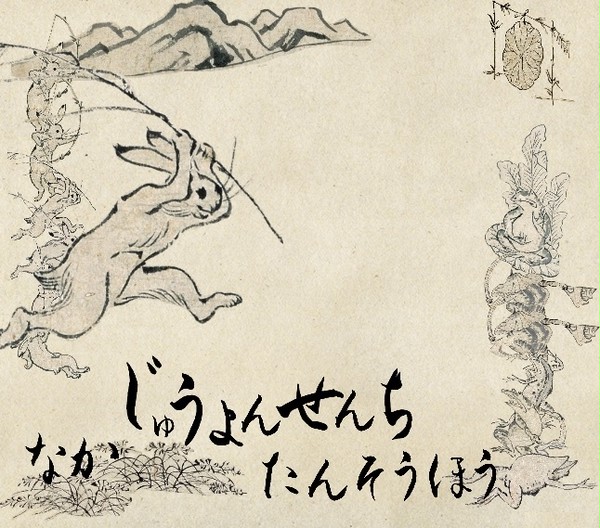 じゅうよんせんち
なか
たんそうほう